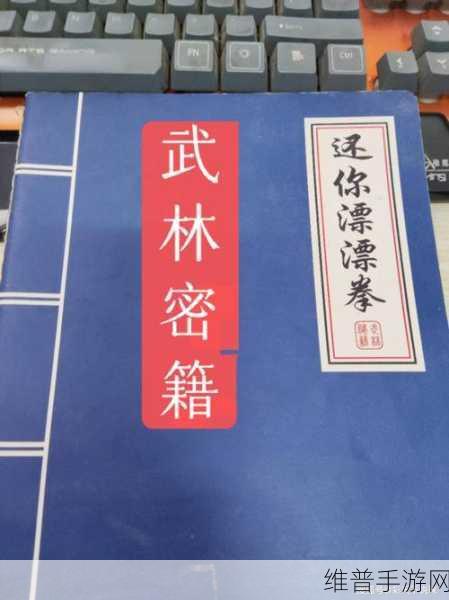 FN
Ctrl
还你漂漂拳
武林密籍
维普手游网